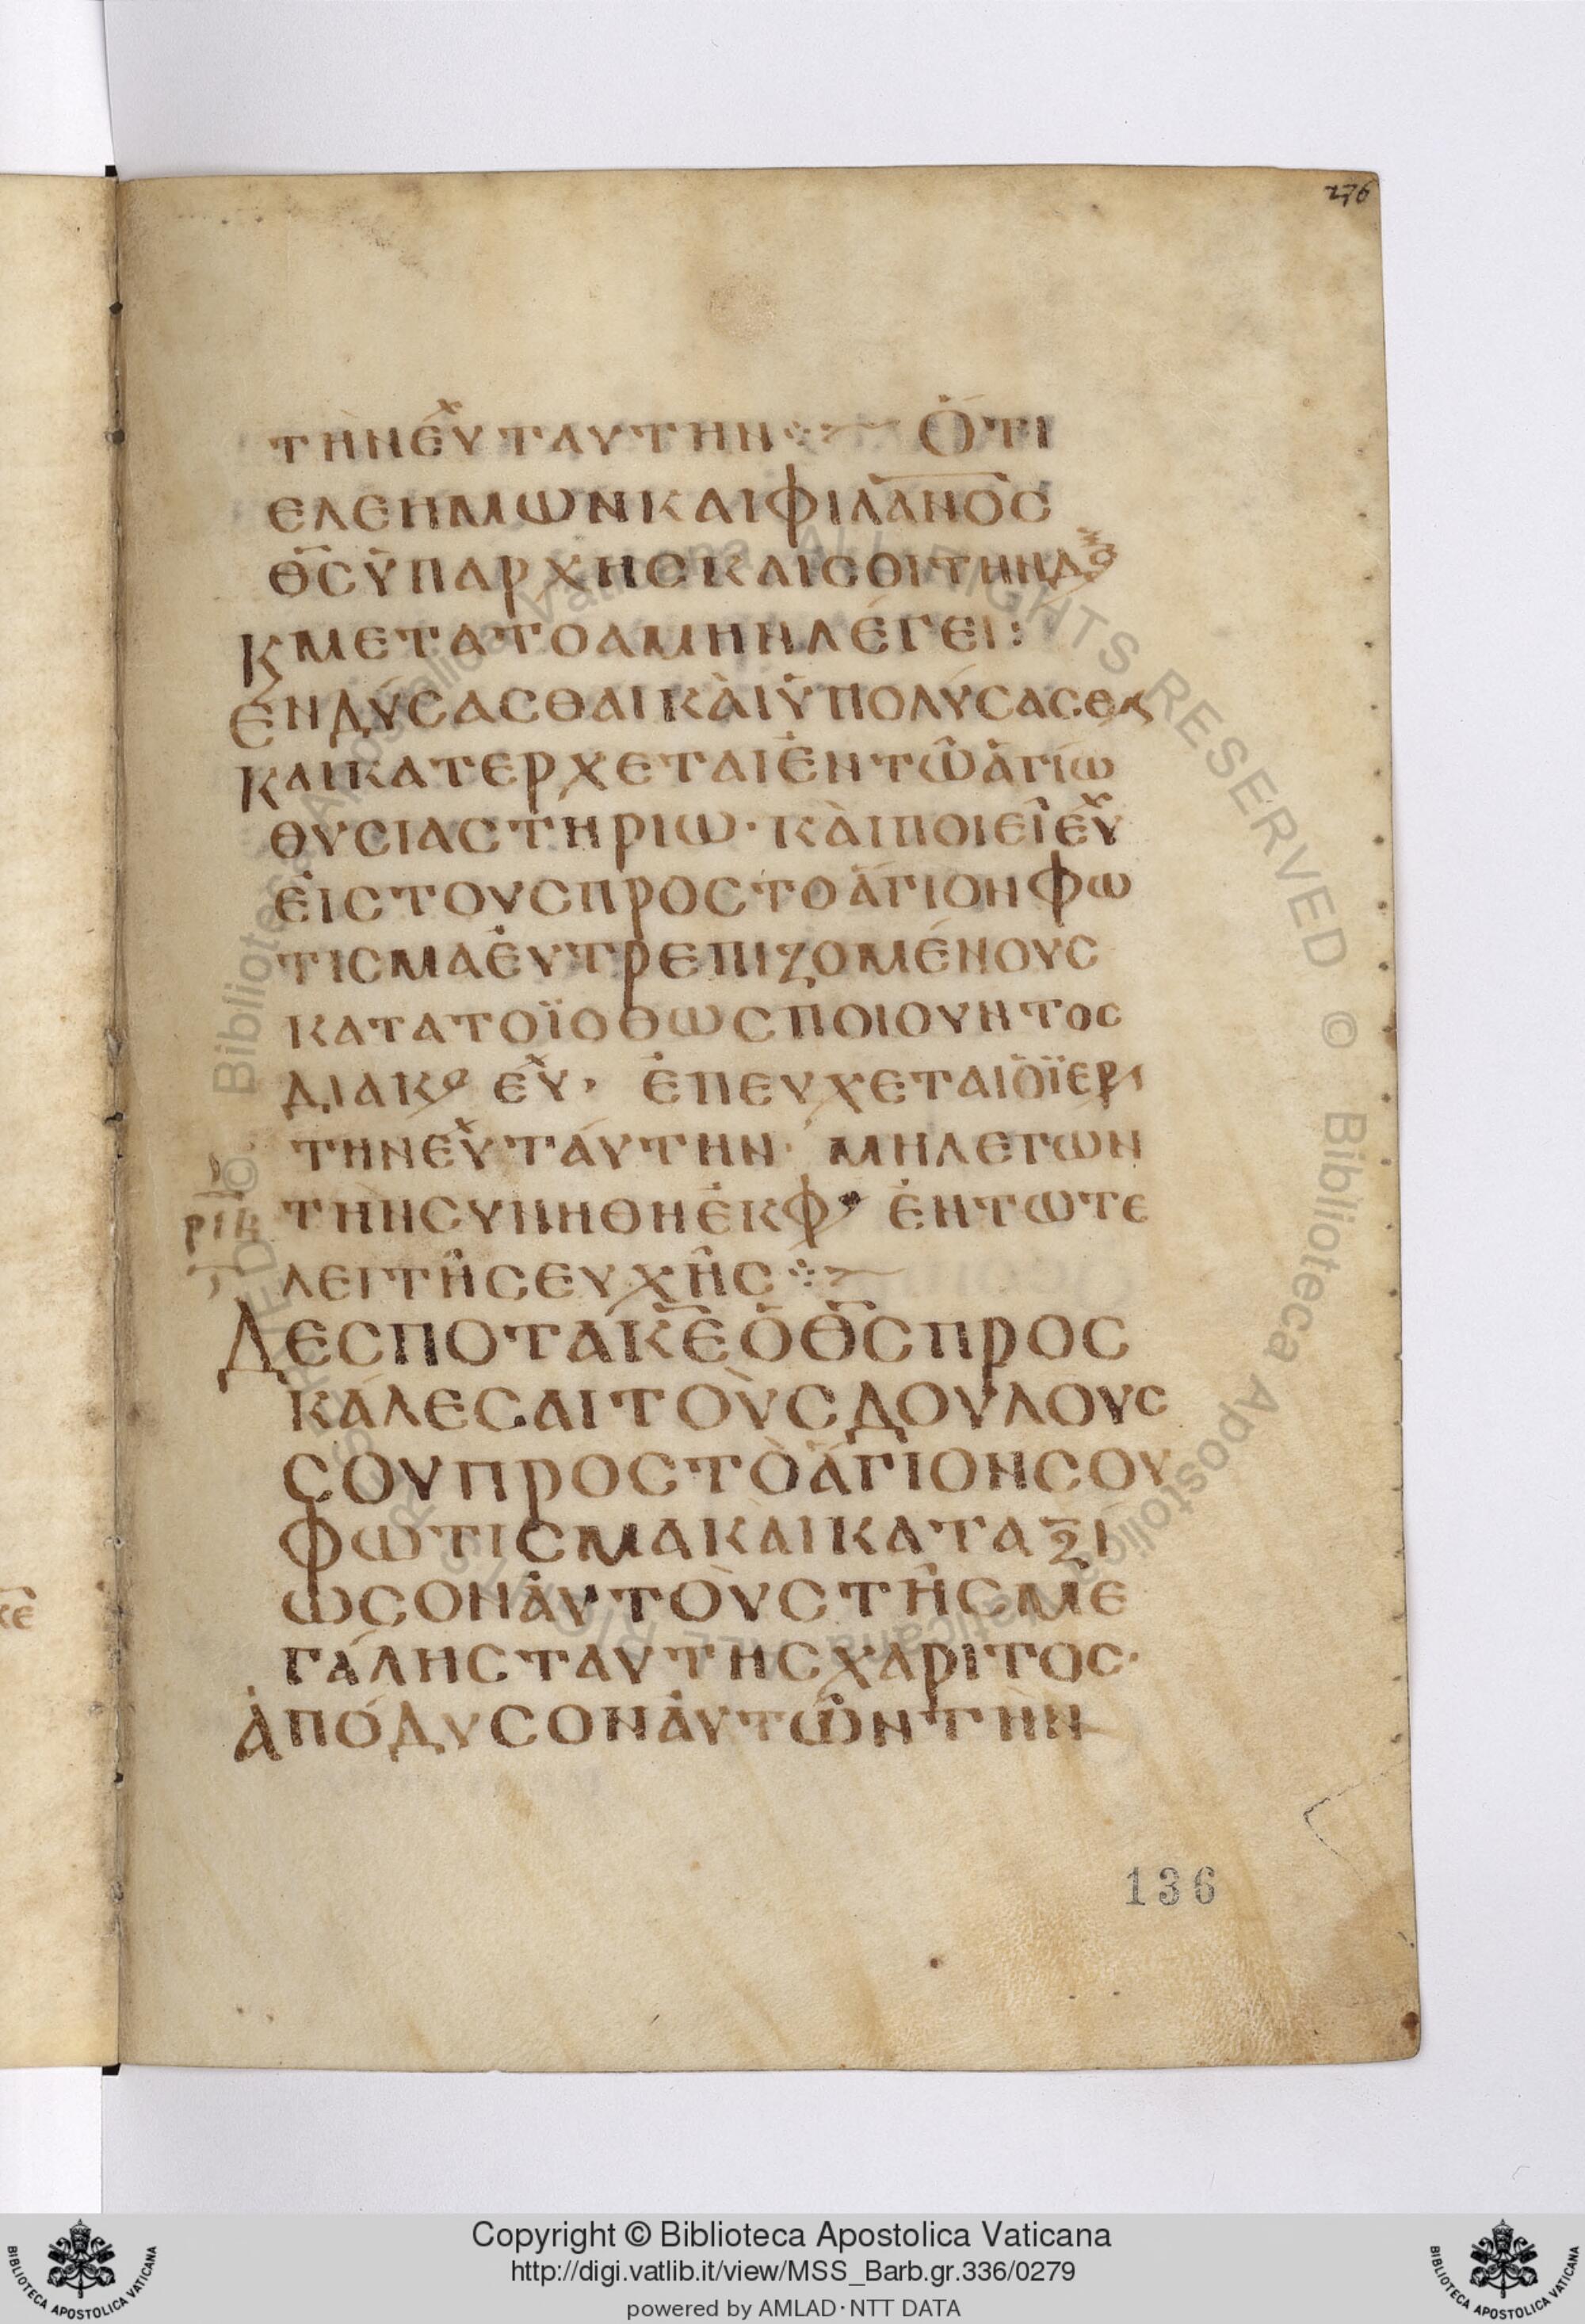 276
ΤΗΝΕΥΧ ΤΑΥΤΗΝ ⁘ ὉΤΙ
ΕΛΕΗΜΩΝΚΑΙΦΙΛΑΝΟΣ
ΘΣΥΠΑΡΧΗΣΚΑΙΣΟΙΤΗΝΔΟ
ΚΜΕΤΑΤΟΑΜΗΝΛΕΓΕΙ:
ΕΝΔΥΣΑΣΘΑΙΚΑΙΥΠΟΛΥΣΑΣΘϏ
ΚΑΙΚΑΤΕΡΧΕΤΑΙΕΝΤΩΑΓΙΩ
ΘΥΣΙΑΣΤΗΡΙΩ·ΚΑΙΠΟΙΕΙΕΥΧ
ΕΙΣΤΟΥΣΠΡΟΣΤΟΑΓΙΟΝΦΩ
ΤΙΣΜΑΕΥΤΡΕΠΙΖΟΜΕΝΟΥΣ
ΚΑΤΑΤΟΪΟΘΩΣΠΟΙΟΥΝΤΟΣ
ΔΙΑΚΟ ΕΥΧ, ΕΠΕΥΧΕΤΑΙΟΪΕΡ
ΤΗΝΕΥΧΤΑΥΤΗΝ· ΜΗΛΕΓΩΝ
ΡΙΒ ΤΗΝΣΥΝΗΘΗΕΚΦ ΕΝΤΩΤΕ
ΛΕΙΤΗΣΕΥΧΗΣ ⁘
ΔΕΣΠΟΤΑΚΕΟΘΣΠΡΟΣ
ΚΑΛΕΣΑΙΤΟΥΣΔΟΥΛΟΥΣ
ΣΟΥΠΡΟΣΤΟΑΓΙΟΝΣΟΥ
ΦΩΤΙΣΜΑΚΑΙΚΑΤΑΞΙ
ΩΣΟΝΑΥΤΟΥΣΤΗΣΜΕ
ΓΑΛΗΣΤΑΥΤΗΣΧΑΡΙΤΟΣ·
ΑΠΟΔΥΣΟΝΑΥΤΩΝΤΗΝ
136
ΚΕ
Copyright © Biblioteca Apostolica Vaticana
http://digi.vatlib.it/view/MSS_Barb.gr.336/0279
powered by AMLAD·NTT DATA
BIBLIOTECA APOSTOLICA VATICANA
BIBLIOTECA APOSTOLICA VATICANA